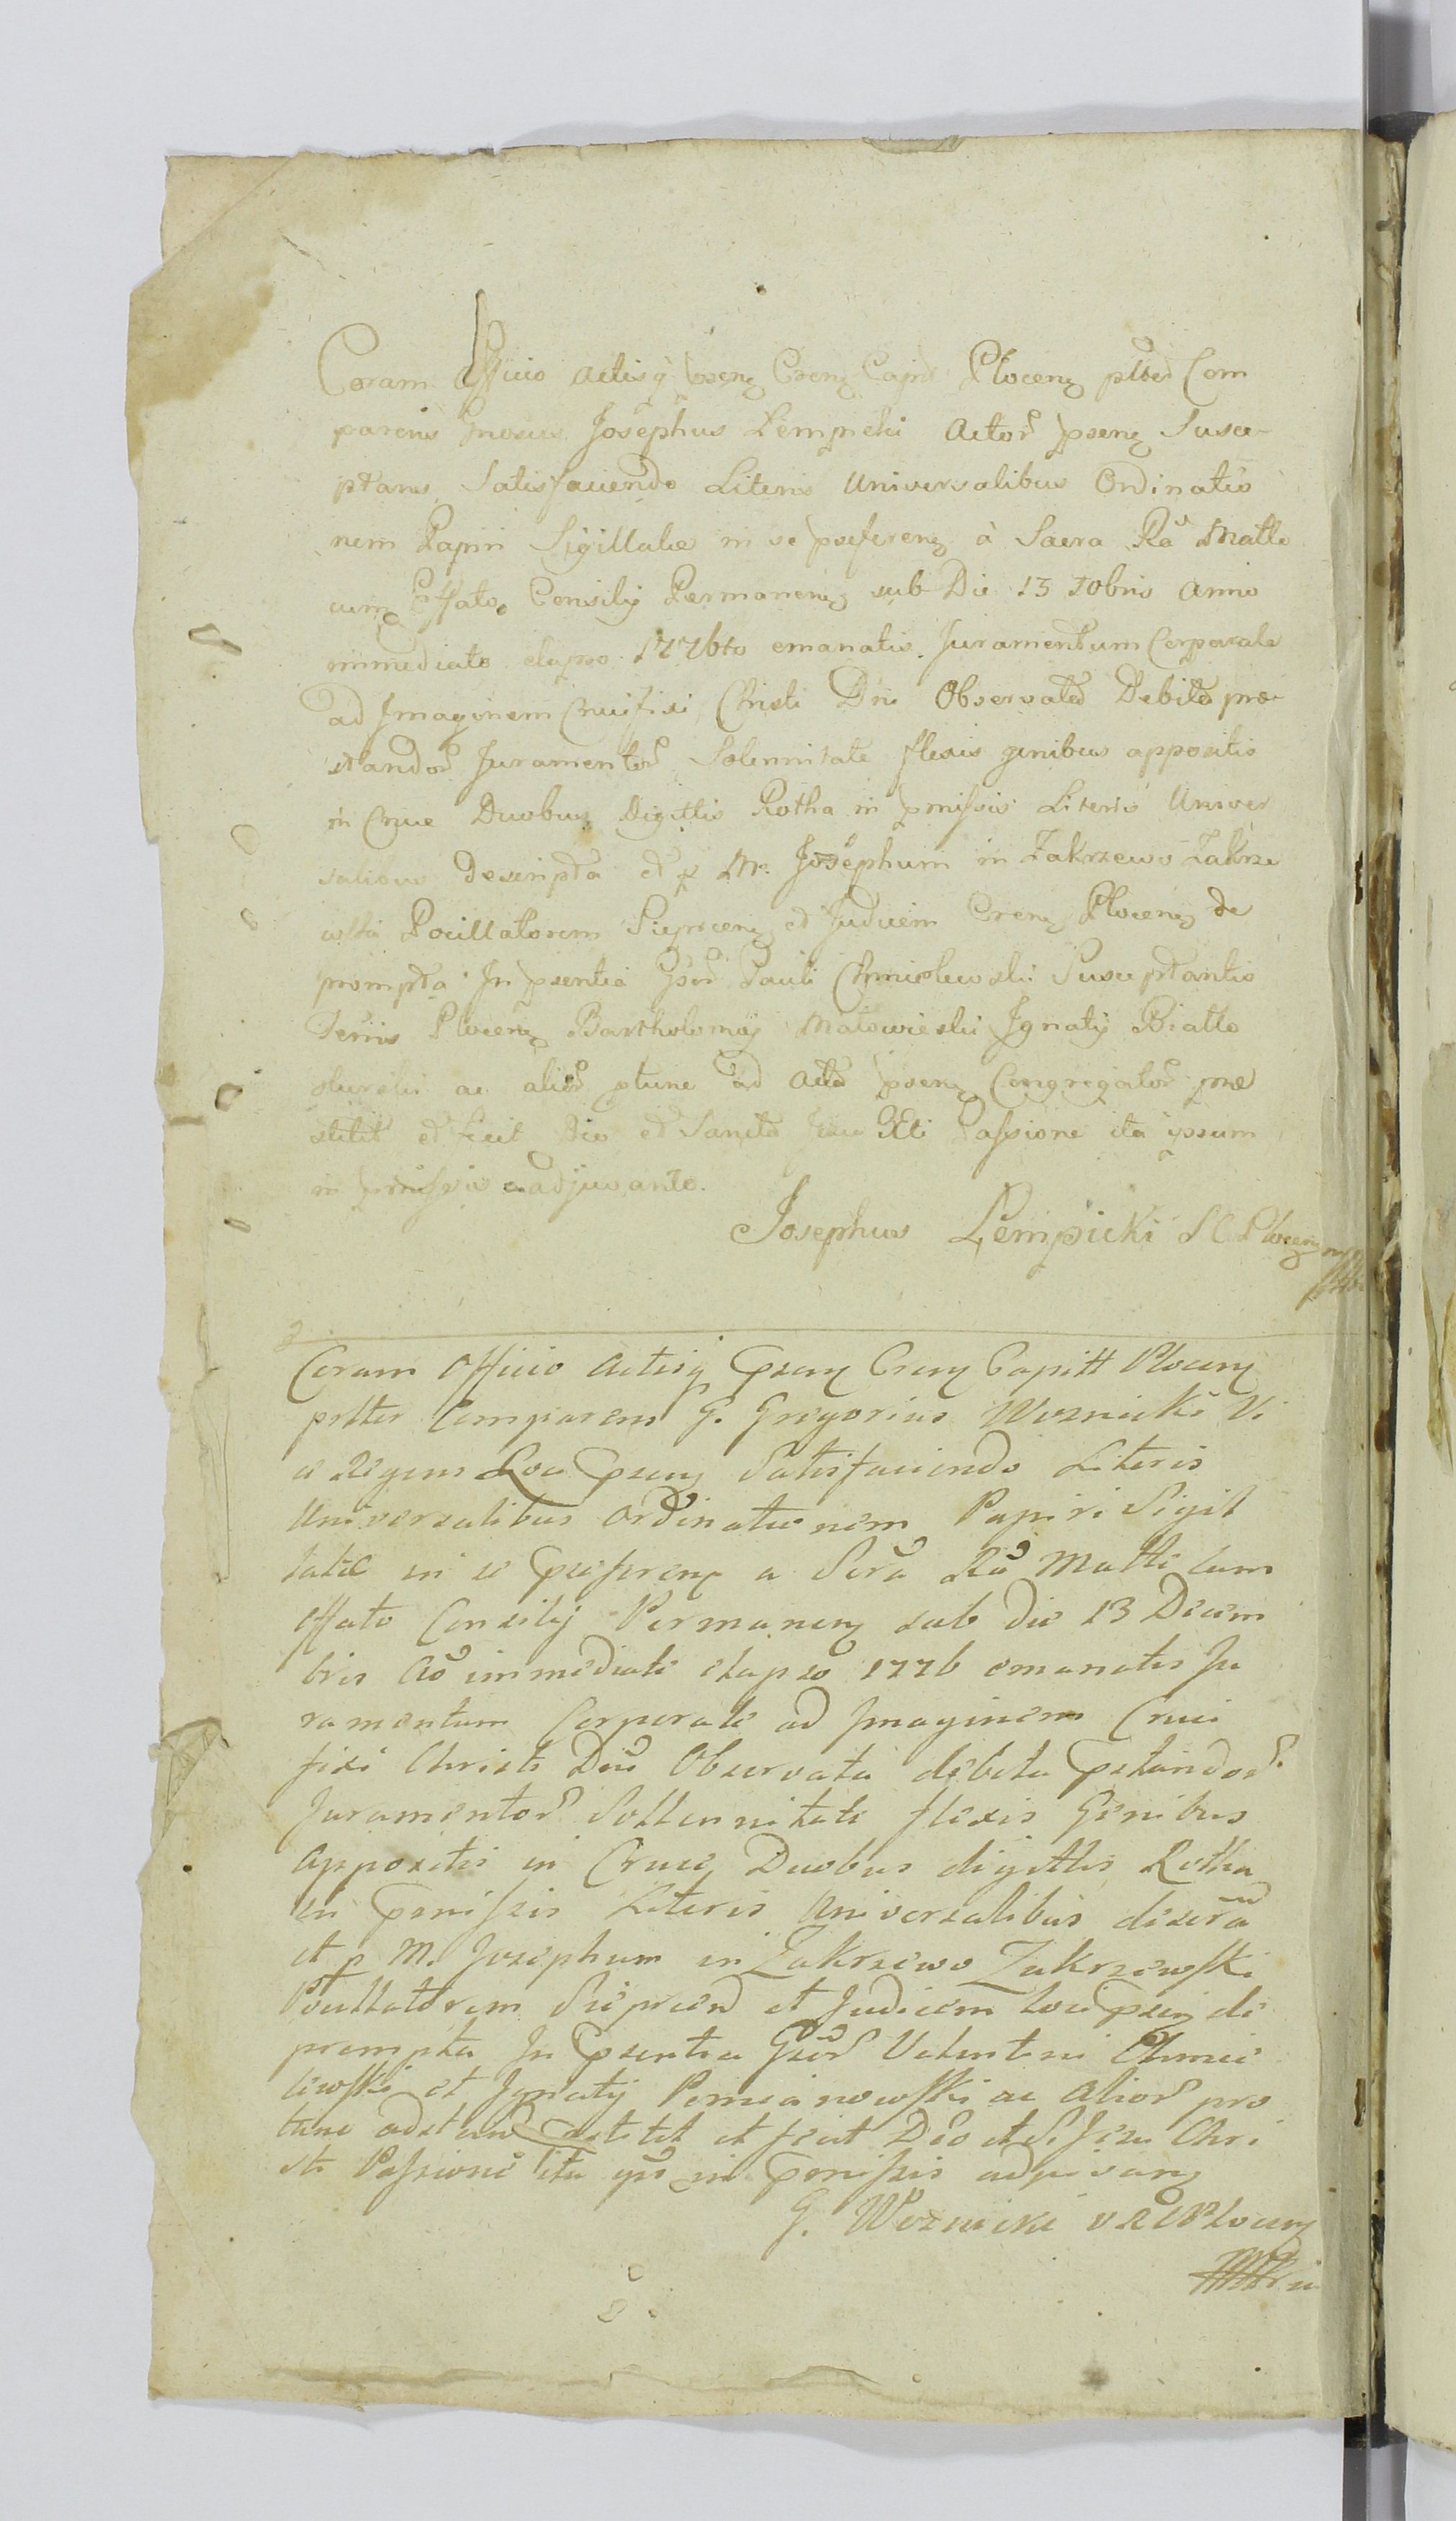 Coram Officio Actisq̃ pseñ Creñ Capit Ploceñ plter Com
parens Gnosus Josephus Lempicki Actor pseñ Susce-
ptans Satisfaciendo Literis Universalibus Ordinatio
nem Papiri Sigillatae in se praefereñ à Sacra Ra Matte
cum Effato Consilij Permaneñ sub Die 13 Xbris Anno
immediate elapso 1776to emanatis Juramentum Corporale
ad Imaginem Crucifixi Christi Dni Observata Debita præ-
standor Juramentor Solennitate flexis genibus appositis
in Cruce Duobus Digittis Rotha in pmissis Literis Univer
salibus Descripta et p M. Josephum in Zakrzewo Zakrze
wski Pocillatorem Sieprceñ et Judicem Creñ Ploceñ de
prompta In psentia Gsor Pauli Chmielewski Susceptantis
Terris Ploceñ Bartholomæj Makowieski Ignatij Biallo
skurski ac alior ptunc ad Acta pseñ Congregator præ
stitit et fecit Deo et Sancta Jesu Xti Passione ita ipsum
in pmissis adjuvante.
Josephus Lempicki S C Ploceñ mp
2
Coram Officio Actisq̃ Pseñ Creñ Capitt Ploceñ
pltter Comparens G. Gregorius Woznicki Vi
ce Regens Loci Pseñ Satisfaciendo Literis
Universalibus Ordinationem Papiri Sigil
latæ in se Præfereñ a Sera Ra Matte Cum
Effato Consilij Permaneñ sub die 13 Decem
bris Ao immediate elapso 1776 emanatis Ju
ramentum Corporale ad Imaginem Cruci
fixi Christi Dni Observata debita Pstandor
Juramentor Sollennitate flexis Genibus
Appositis in Cruce Duobus digittis Rotha
in Pmissis Literis Universalibus discra
et p M. Josephum in Zakrzewo Zakrzewski
Pocillatorem Sieprcen et Judicem Loci Pseñ de
prompta In Psentia Gsor Valentini Chmie
lewski et Ignatij Pomianowski ac Alior pro
tunc adstan Pstitit et fecit Deo et S Jesu Chri
sti Passione ita ips in Pmissis adjuvañ
G. Woznicki V R C Ploceñ